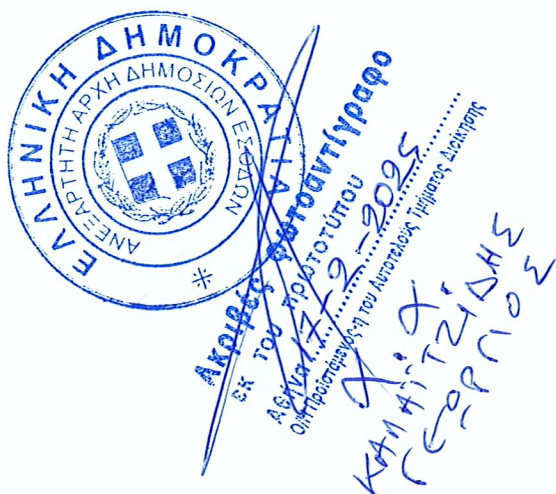 ΕΛΛΗΝΙΚΗ ΔΗΜΟΚΡΑΤΙΑ
ΑΝΕΞΑΡΤΗΤΗ ΑΡΧΗ ΔΗΜΟΣΙΩΝ ΕΣΟΔΩΝ
Ακριβές φωτοαντίγραφο
εκ του πρωτοτύπου
Αθήνα 17-2-2025
Ο/Η Προϊστάμενος-η του Αυτοτελούς Τμήματος Διοίκησης
ΚΑΠΑΪΤΖΙΔΗΣ
ΓΕΩΡΓΙΟΣ